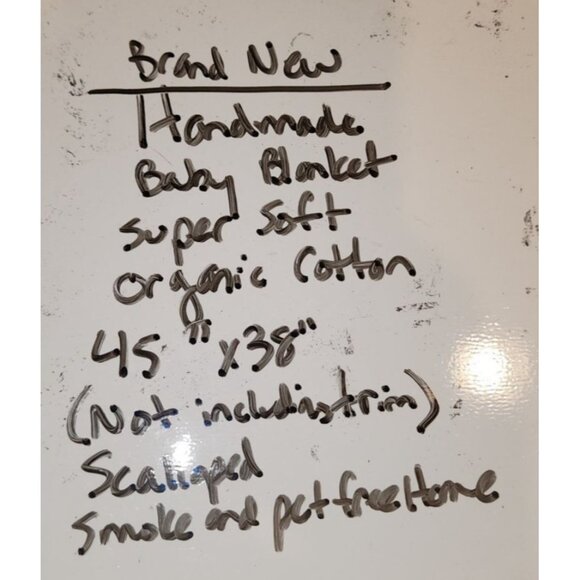 Brand New
Handmade
Baby Blanket
super soft
organic Cotton
45" x38"
(Not including trim)
Scalloped
smoke and pet free Home